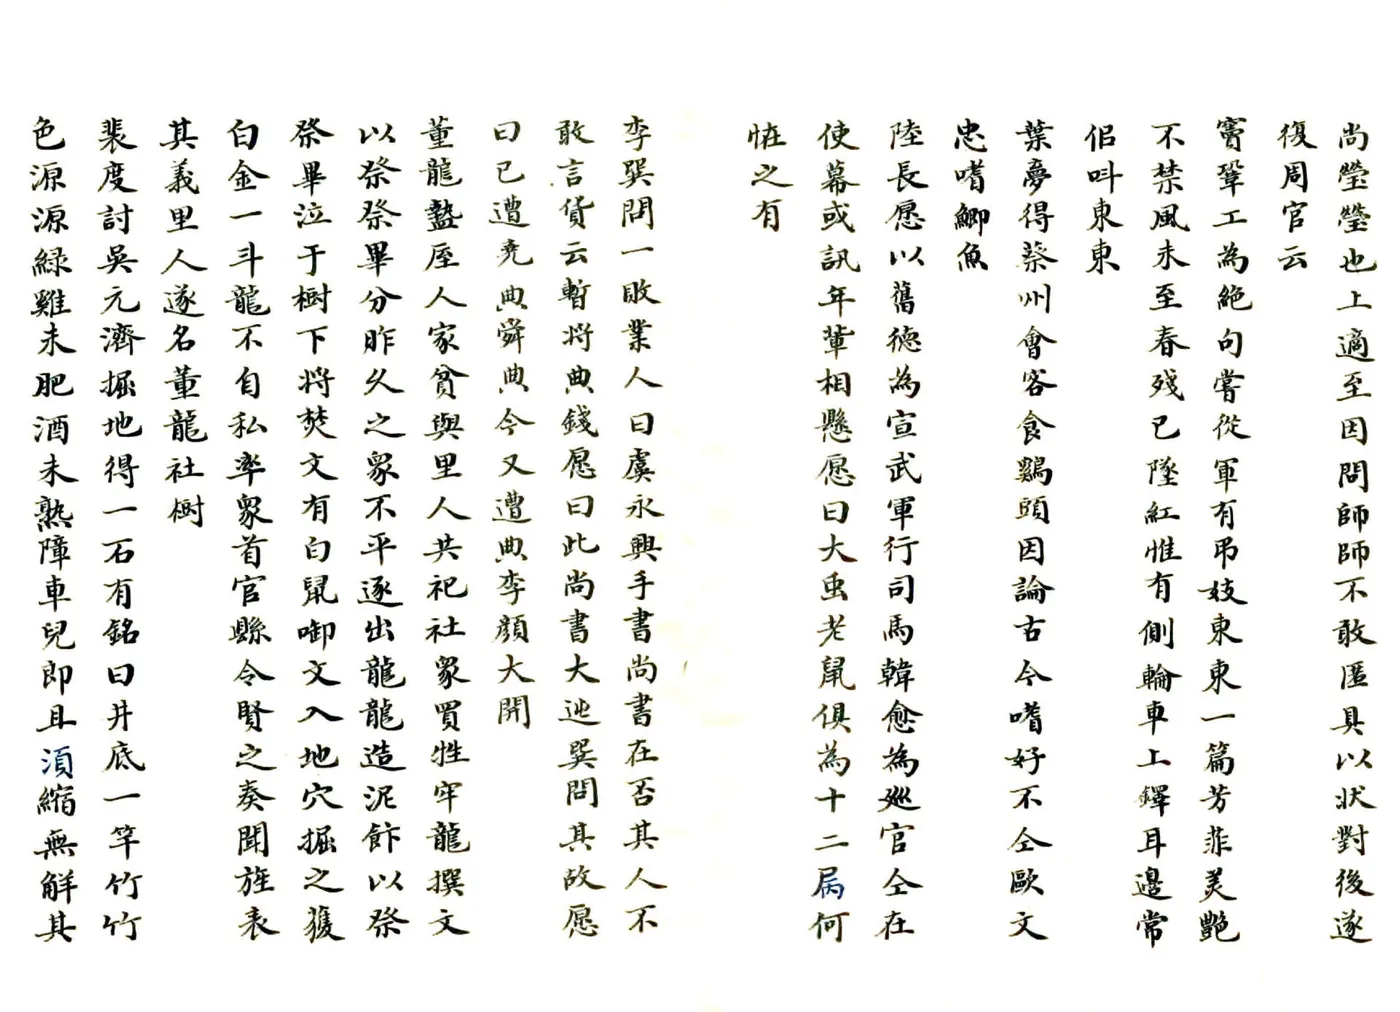 尚瑩瑩也上適至因問師師不敢匿具以狀對後遂
復周官云
竇鞏工為絶句嘗從軍有吊妓東東一篇芳菲美艷
不禁風未至春殘已墜紅惟有側輪車上鐸耳邊常
佀呌東東
葉夢得蔡州會客食鷄頭因論古今嗜好不仝歐文
忠嗜鯽魚
陸長愿以舊德為宣武軍行司馬韓愈為廵官仝在
使幕或訊年輩相懸愿曰大虫老鼠俱為十二属何
恠之有
李巽問一敗業人曰虞永興手書尚書在否其人不
敢言貨云暫将典錢愿曰此尚書大迍巽問其故愿
曰已遭堯典舜典今又遭典李顔大開
董龍盩厔人家貧與里人共祀社眾買牲牢龍撰文
以祭祭畢分昨久之眾不平逐出龍龍造泥飰以祭
祭畢泣于樹下将焚文有白鼠啣文入地穴掘之獲
白金一斗龍不自私率眾首官縣令賢之奏聞旌表
其義里人遂名董龍社樹
裴度討吳元濟掘地得一石有銘曰井底一竿竹竹
色源源緑雞未肥酒未熟障車兒郎且湏縮無觧其